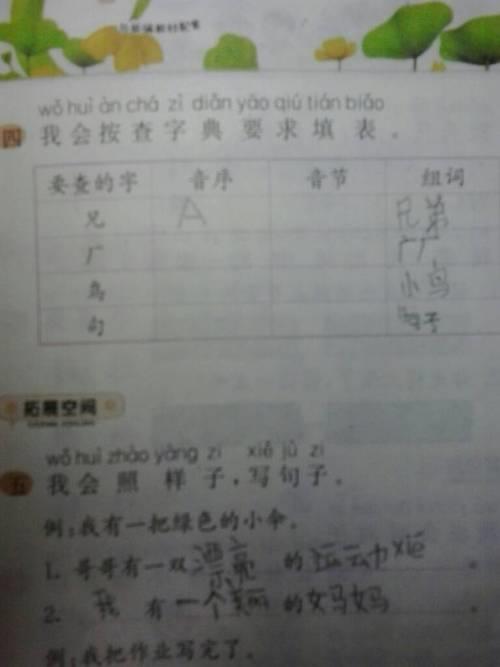 与部编教材配套
wǒ huì àn chá zì diǎn yāo qiú tián biǎo
四 我会按查字典要求填表。
要查的字 音序 音节 组词
兄 A 兄弟
厂 厂厂
鸟 小鸟
句 句子
拓展空间
wǒ huì zhào yàng zi xiě jù zi
五 我会照样子,写句子。
例:我有一把绿色的小伞。
1. 哥哥有一双漂亮的运动xié。
2. 我有一个美丽的女马妈。
例:我把作业写完了。